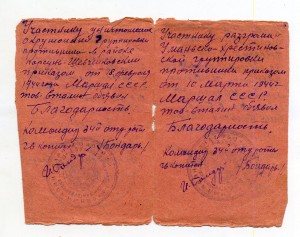 Участнику уничтожения
окружённой группировки
противника в районе
Корсунь-Шевченковский
приказом от 18 февраля
1944 года Маршал СССР
тов. Сталин объявил
Благодарность.
Командир 340
гв капитан /Бондарь/
Участнику разгрома
Уманьско-Христинов-
ской группировки
противника приказом
от 10 марта 1944 г.
Маршал СССР
тов. Сталин объявил
Благодарность.
Командир 340
гв капитан /Бондарь/